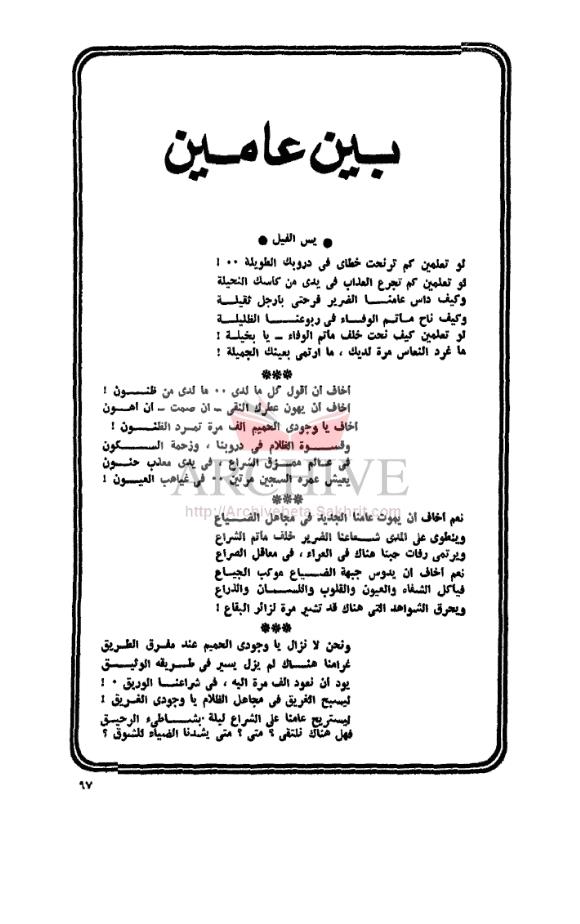 بين عامين
● يس الفيل ●
لو تعلمين كم ترنحت خطاى فى دروبك الطويلة ٠٠ !
لو تعلمين كم تجرع العذاب فى يدى من كاسك النحيلة
وكيف داس عامنا الضرير فرحتى بارجل ثقيلة
وكيف ناح مأتم الوفاء فى ربوعنا الظليلة
لو تعلمين كيف نحت خلف ماتم الوفاء ــ يا بخيلة !
ما غرد النعاس مرة لديك ، ما ارتمى بعينك الجميلة !
***
أخاف ان أقول كل ما لدى ٠٠ ما لدى من ظنون !
أخاف ان يهون عطرك النقى ــ ان صمت ــ ان اهون
أخاف يا وجودى الحميم الف مرة تمرد الظنون !
وقسوة الظلام فى دروبنا ، وزحمة السكون
فى عالم ممزق الشراع ، فى يدى معذب حنون
يعيش عمره السجين مرتين ٠٠ فى غياهب العيون !
***
نعم أخاف ان يموت عامنا الجديد فى مجاهل الضياع
وينطوى على المدى شعاعنا الضرير خلف مأتم الشراع
ويرتمى رفات حبنا هناك فى العراء ، فى معاقل الصراع
نعم أخاف ان يدوس جبهة الضياع موكب الجياع
فياكل الشفاء والعيون والقلوب واللسان والذراع
ويحرق الشواهد التى هناك قد تشير مرة لزائر البقاع !
***
ونحن لا نزال يا وجودى الحميم عند مفرق الطريق
غرامنا هناك لم يزل يسير فى طريقه الوثيق
يود أن نعود الف مرة اليه ، فى شراعنا الوريق ٠ !
ليسبح الغريق فى مجاهل الظلام يا وجودى الغريق !
ليستريح عامنا على الشراع ليلة بشاطىء الرحيق
فهل هناك نلتقى ؟ متى ؟ متى يشدنا الضياء للشوق ؟
ARCHIVE
http://Archivebeta.Sakhrit.com
٩٧